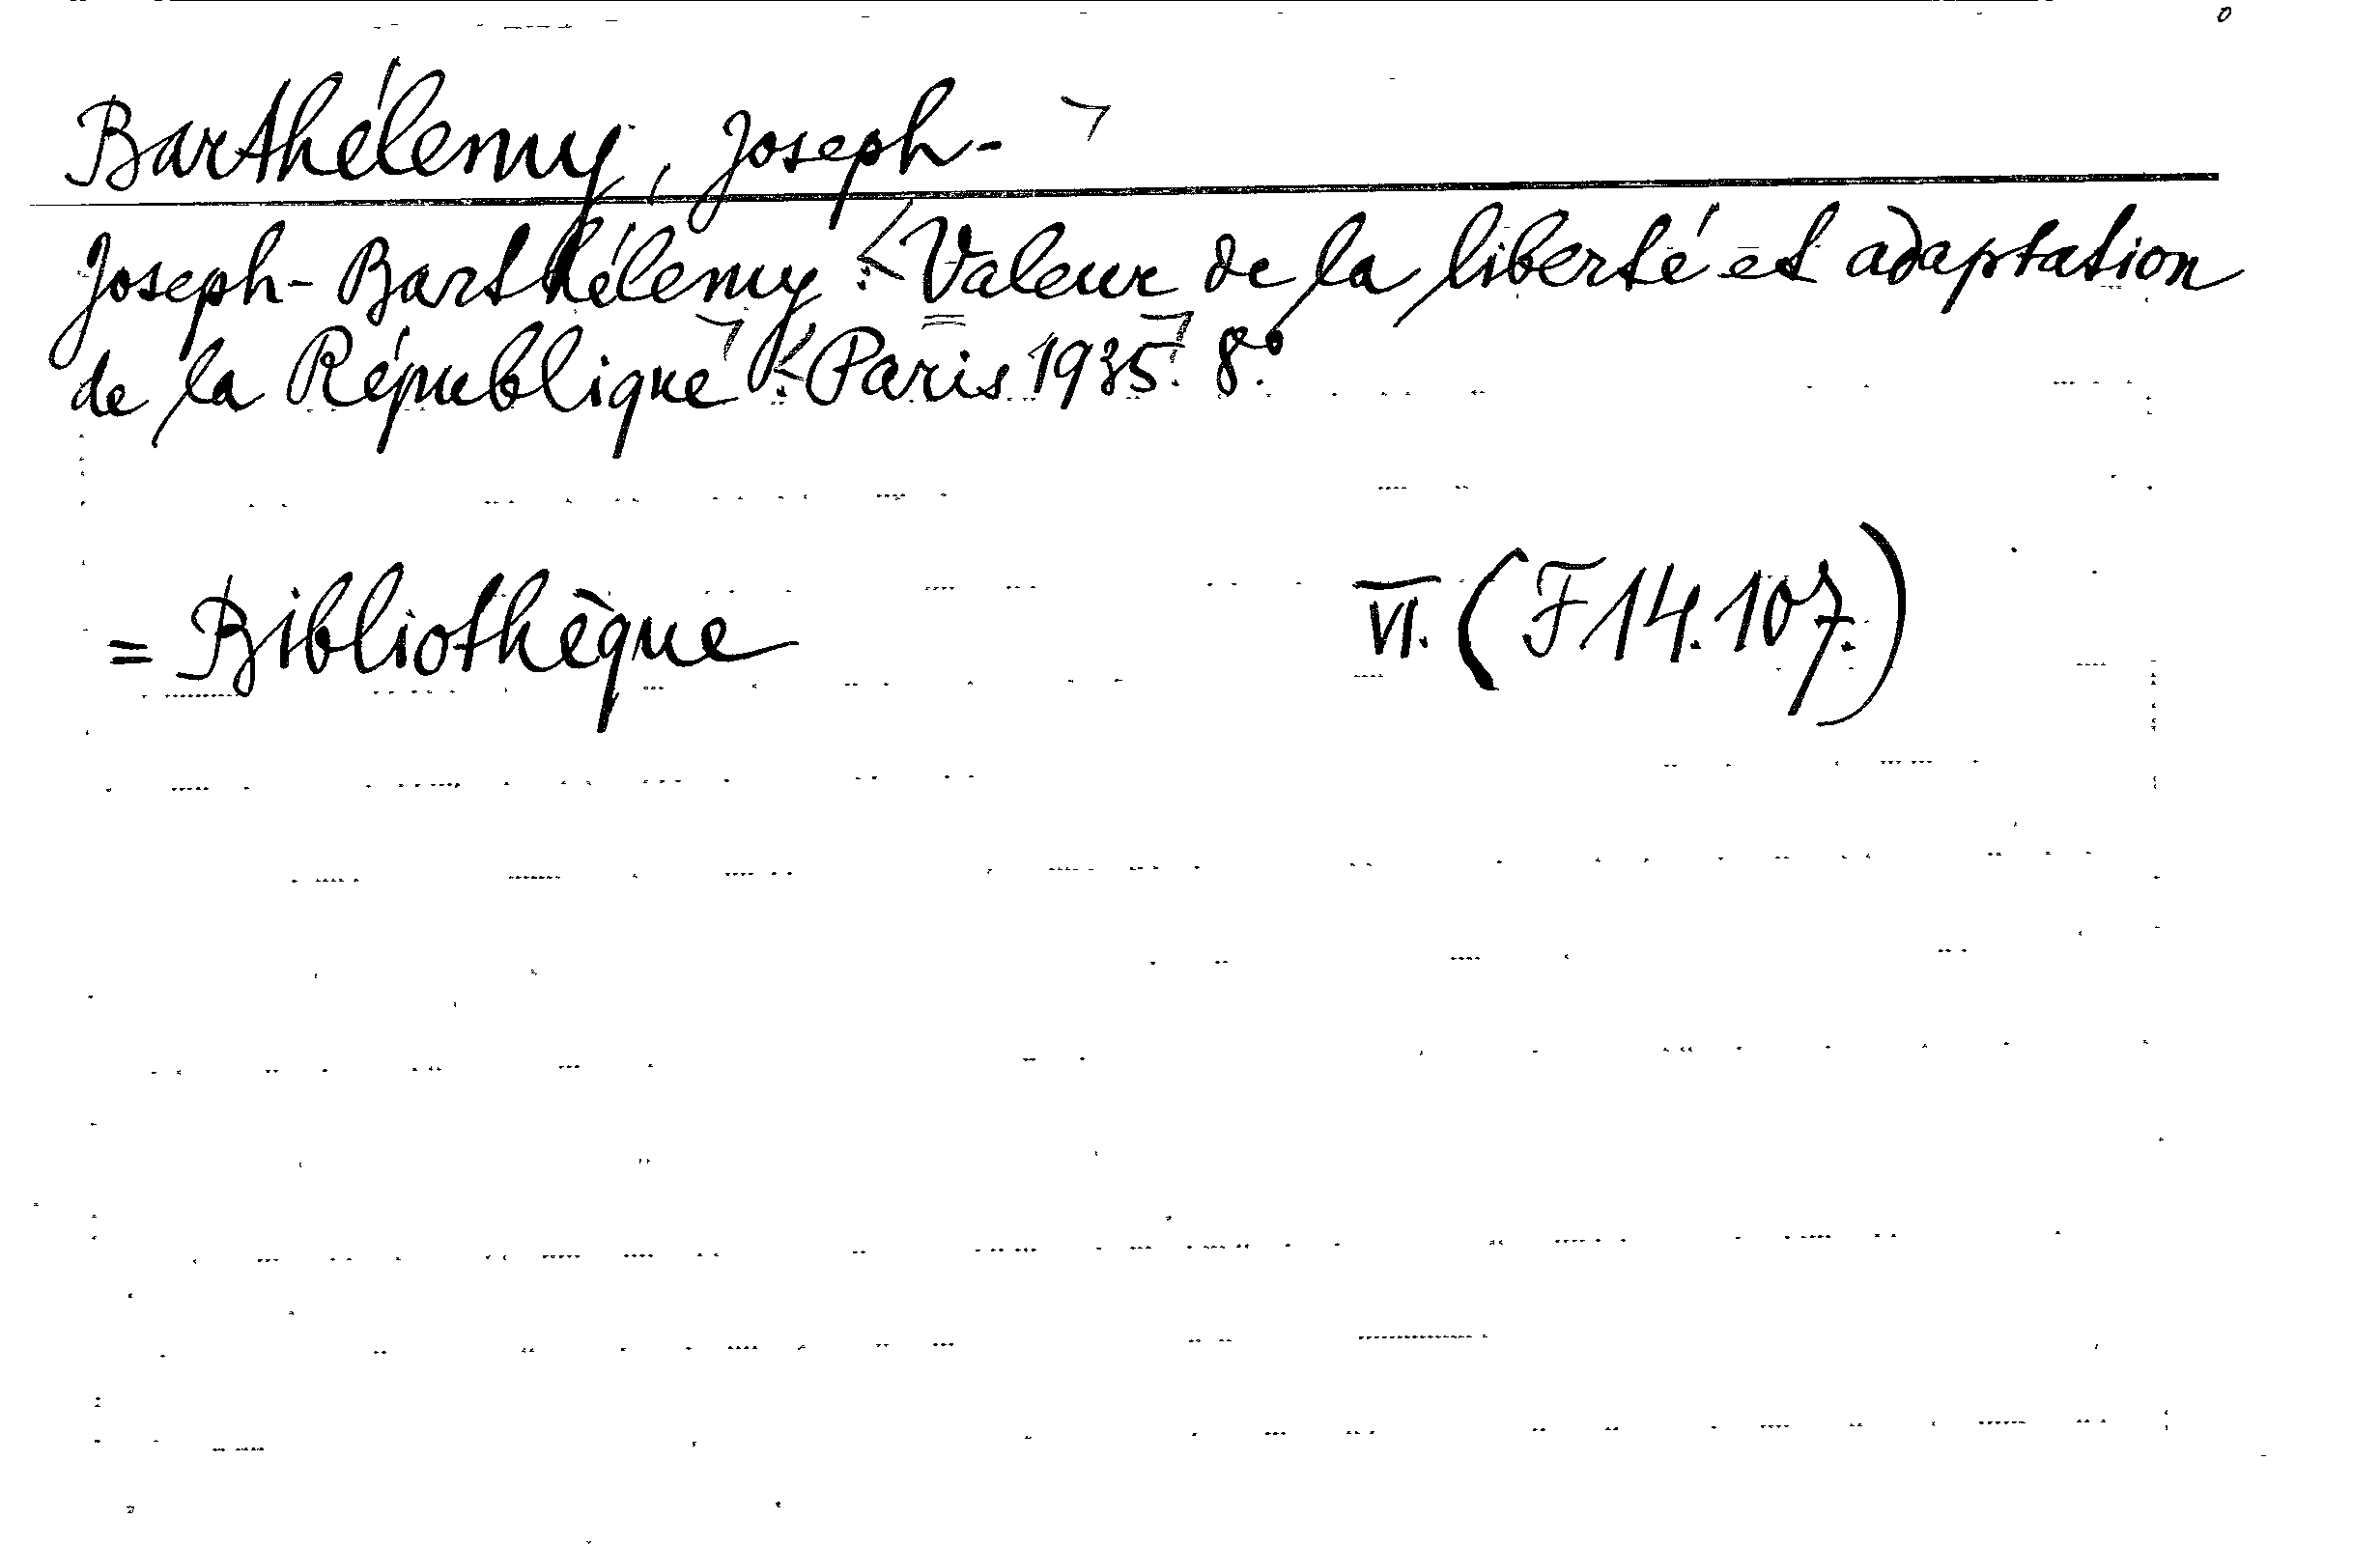 Barthélemy, Joseph-
Joseph-Barthélemy: Valeur de la liberté et adaptation
de la République. Paris 1935. 8.°
= Bibliothèque VI. (F 14.107.)